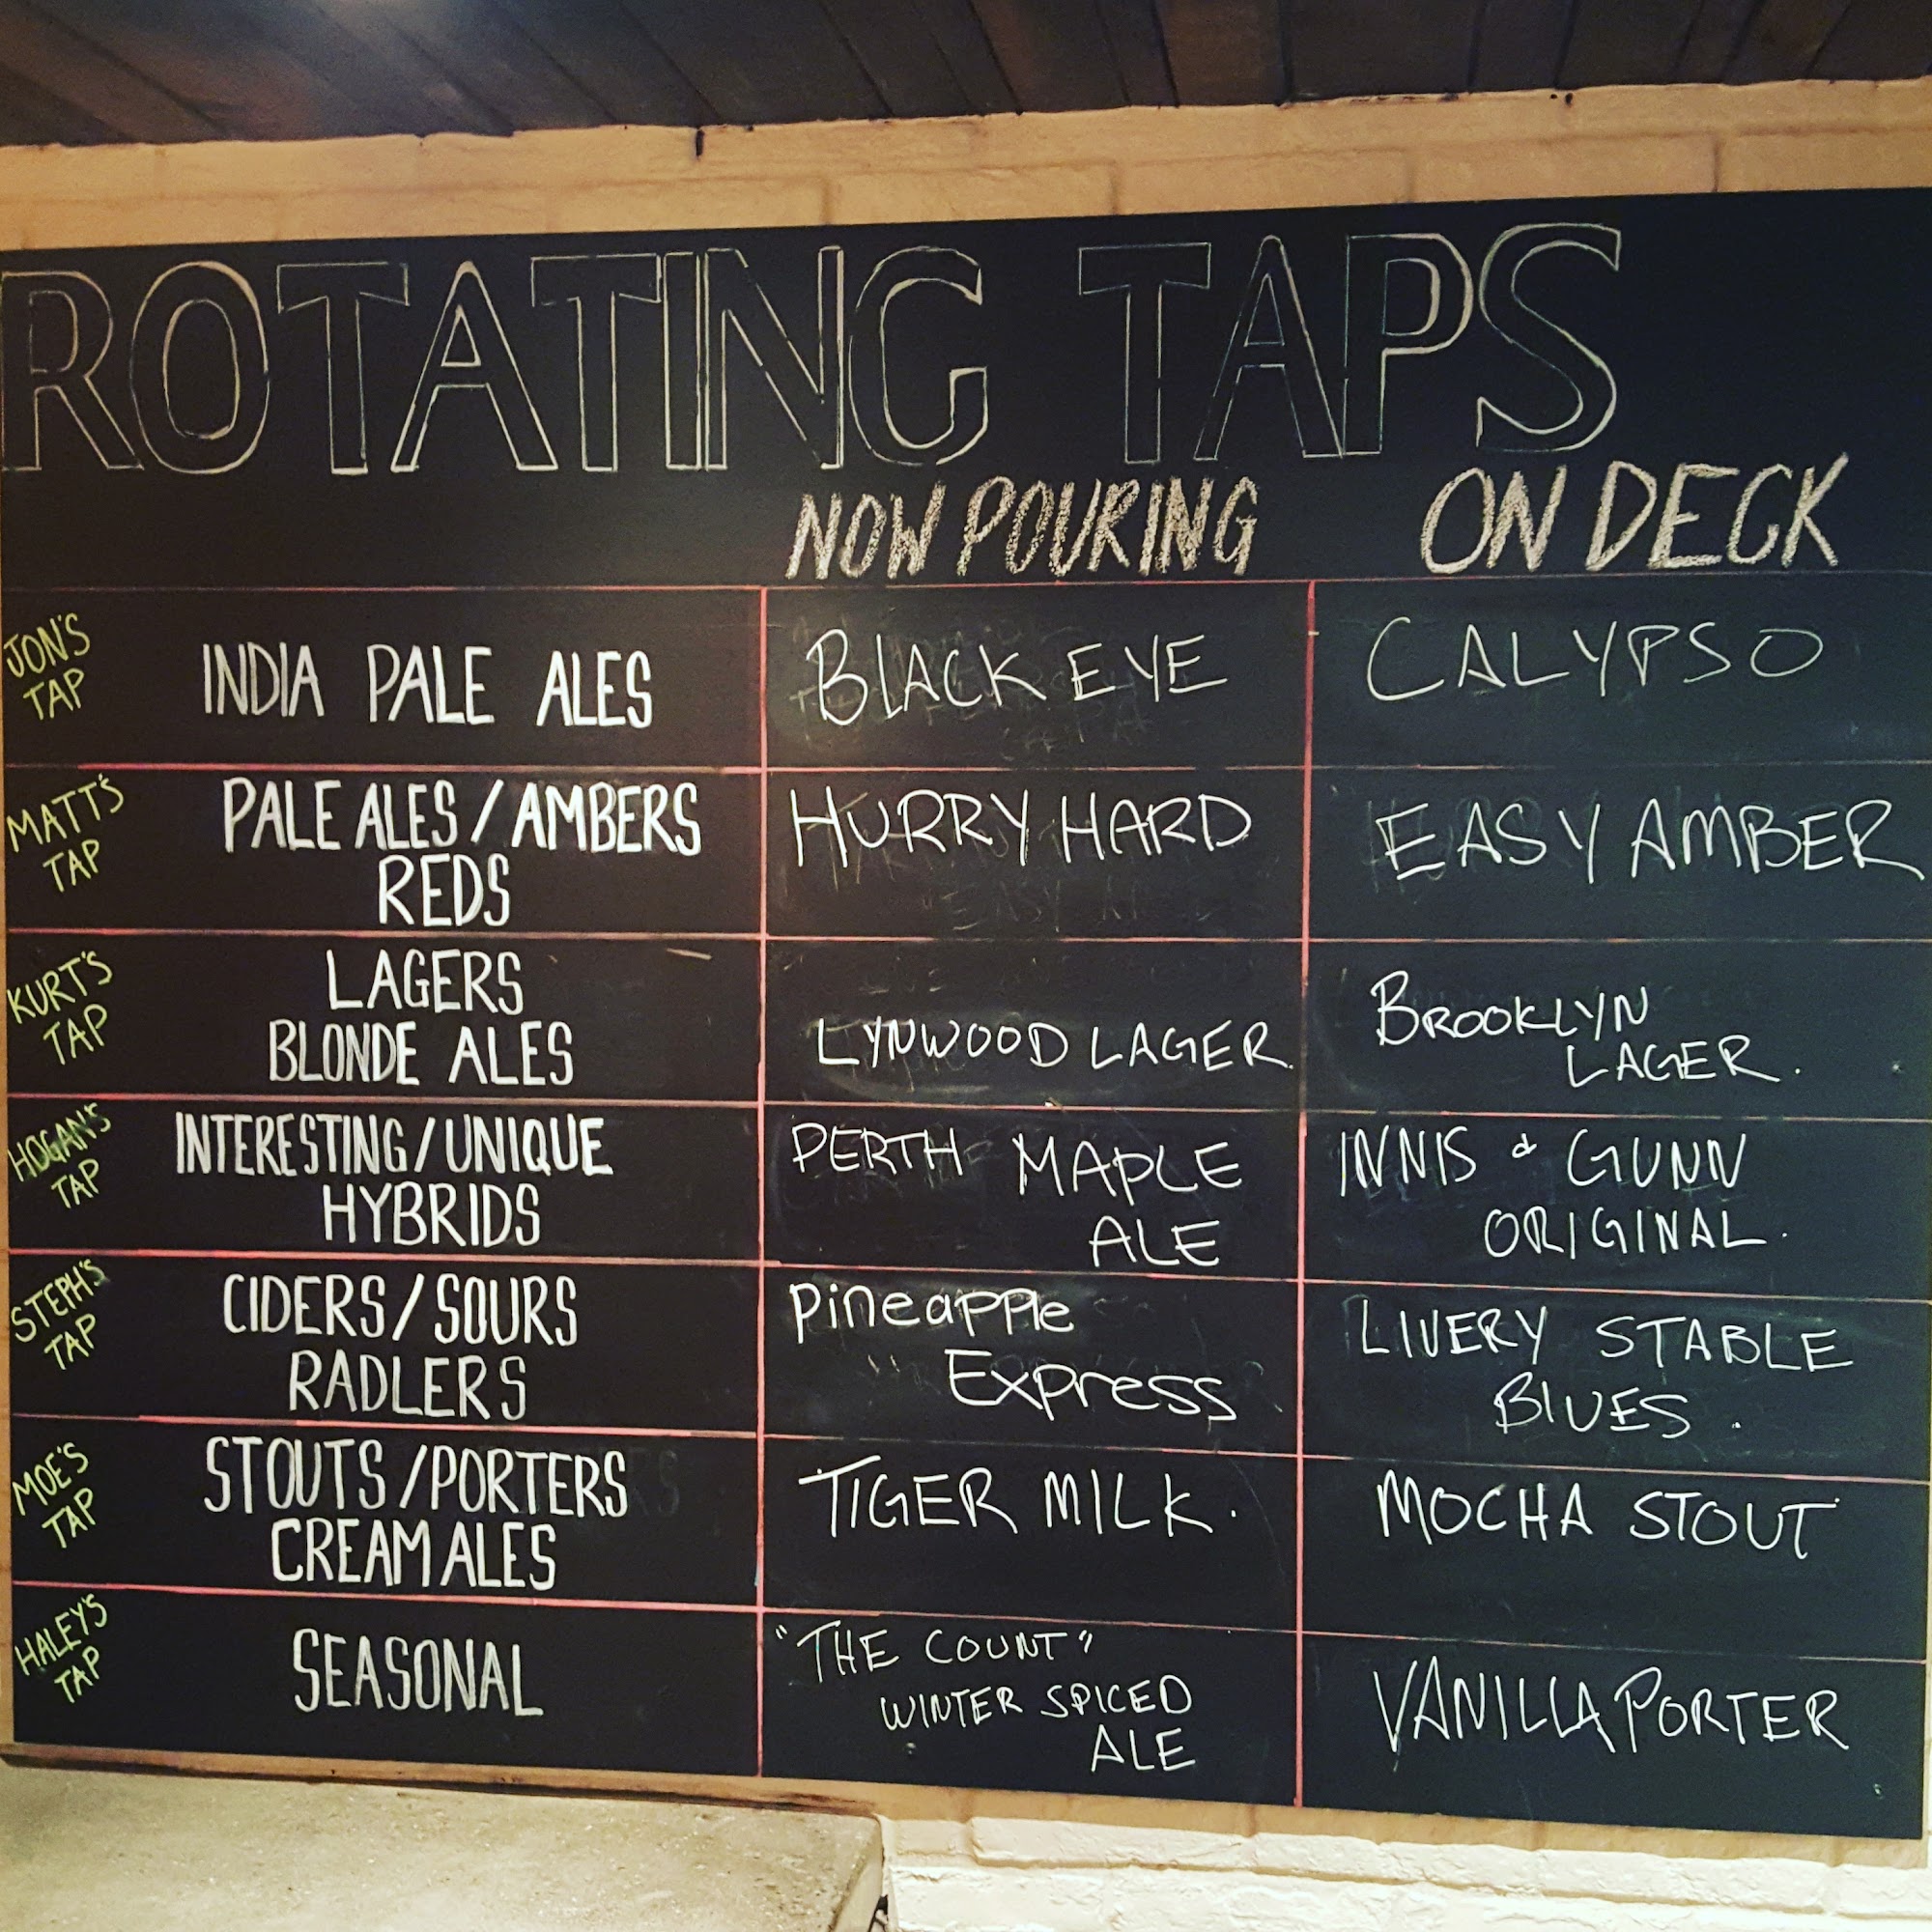 ROTATING TAPS
NOW POURING
ON DECK
JON'S
TAP
INDIA PALE ALES
BLACK EYE
CALYPSO
MATT'S
TAP
PALE ALES / AMBERS
REDS
HURRY HARD
EASY AMBER
KURT'S
TAP
LAGERS
BLONDE ALES
LYNWOOD LAGER.
BROOKLYN
LAGER.
HOGAN'S
TAP
INTERESTING/UNIQUE
HYBRIDS
PERTH MAPLE
ALE
INNIS & GUNN
ORIGINAL.
STEPH'S
TAP
CIDERS/SOURS
RADLERS
Pineapple
Express
LIVERY STABLE
BLUES.
MOE'S
TAP
STOUTS/PORTERS
CREAM ALES
TIGER MILK.
MOCHA STOUT
HALEY'S
TAP
SEASONAL
"THE COUNT"
WINTER SPICED
ALE
VANILLA PORTER